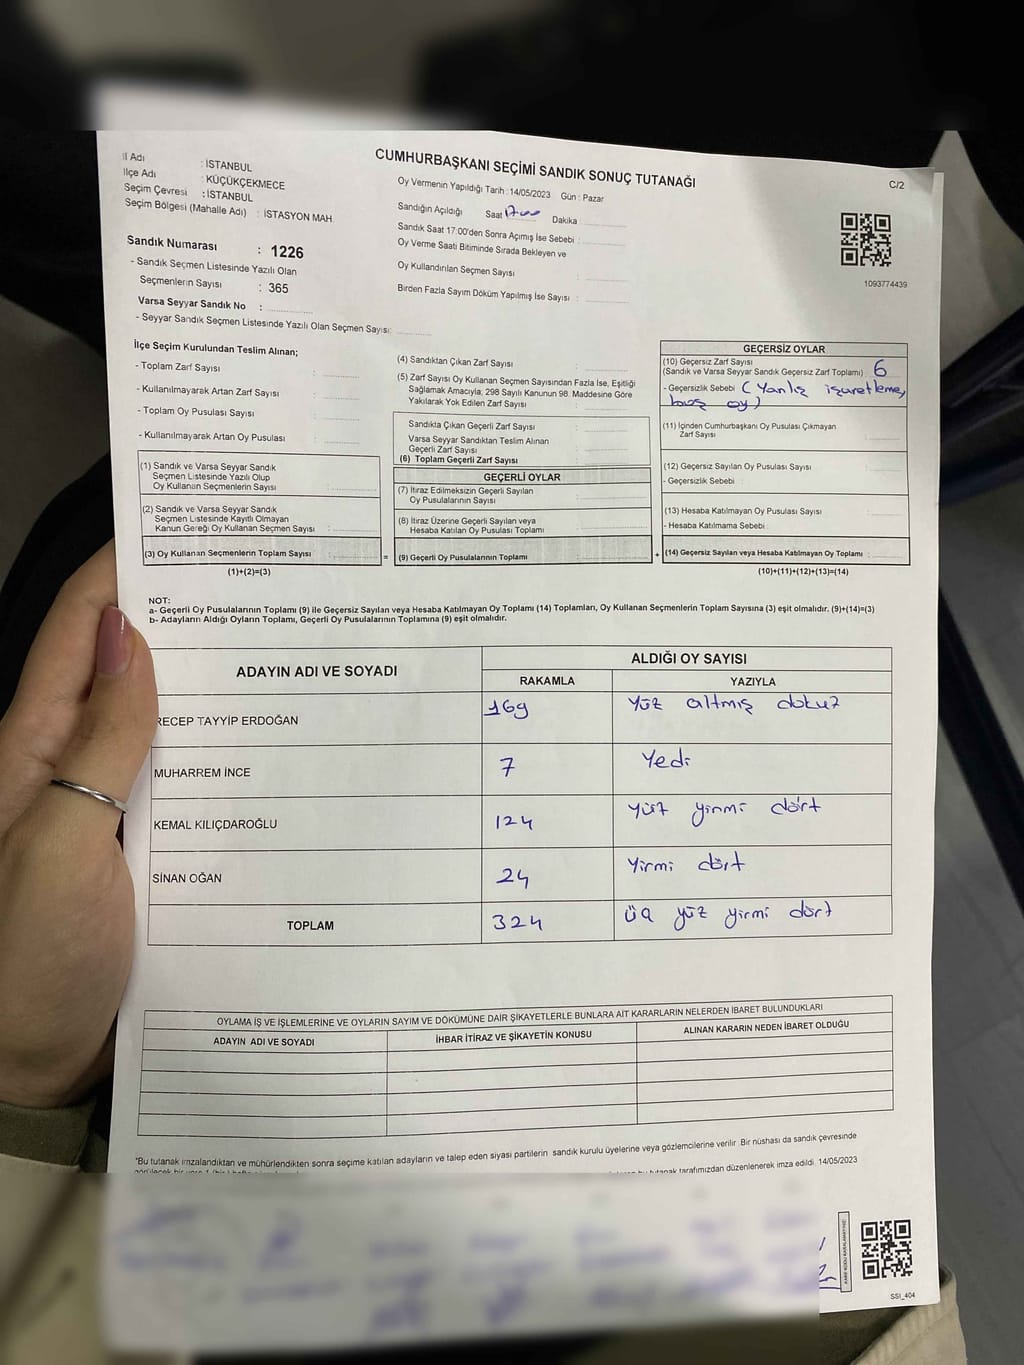 CUMHURBAŞKANI SEÇİMİ SANDIK SONUÇ TUTANAĞI
C/2
İl Adı : İSTANBUL
İlçe Adı : KÜÇÜKÇEKMECE
Seçim Çevresi : İSTANBUL
Seçim Bölgesi (Mahalle Adı) : İSTASYON MAH.
Sandık Numarası : 1226
- Sandık Seçmen Listesinde Yazılı Olan
Seçmenlerin Sayısı : 365
Varsa Seyyar Sandık No :
- Seyyar Sandık Seçmen Listesinde Yazılı Olan Seçmen Sayısı:
Oy Vermenin Yapıldığı Tarih : 14/05/2023 Gün : Pazar
Sandığın Açıldığı Saat 17:00 Dakika
Sandık Saat 17:00'den Sonra Açımış İse Sebebi :
Oy Verme Saati Bitiminde Sırada Bekleyen ve
Oy Kullandırılan Seçmen Sayısı :
Birden Fazla Sayım Döküm Yapılmış İse Sayısı :
1093774439
İlçe Seçim Kurulundan Teslim Alınan;
- Toplam Zarf Sayısı :
- Kullanılmayarak Artan Zarf Sayısı :
- Toplam Oy Pusulası Sayısı :
- Kullanılmayarak Artan Oy Pusulası :
(1) Sandık ve Varsa Seyyar Sandık
Seçmen Listesinde Yazılı Olup
Oy Kullanan Seçmenlerin Sayısı :
(2) Sandık ve Varsa Seyyar Sandık
Seçmen Listesinde Kayıtlı Olmayan
Kanun Gereği Oy Kullanan Seçmen Sayısı :
(3) Oy Kullanan Seçmenlerin Toplam Sayısı : =
(1)+(2)=(3)
(4) Sandıktan Çıkan Zarf Sayısı :
(5) Zarf Sayısı Oy Kullanan Seçmen Sayısından Fazla İse, Eşitliği
Sağlamak Amacıyla, 298 Sayılı Kanunun 98. Maddesine Göre
Yakılarak Yok Edilen Zarf Sayısı :
Sandıkta Çıkan Geçerli Zarf Sayısı :
Varsa Seyyar Sandıktan Teslim Alınan
Geçerli Zarf Sayısı :
(6) Toplam Geçerli Zarf Sayısı :
GEÇERLİ OYLAR
(7) İtiraz Edilmeksizin Geçerli Sayılan
Oy Pusulalarının Sayısı :
(8) İtiraz Üzerine Geçerli Sayılan veya
Hesaba Katılan Oy Pusulası Toplamı :
(9) Geçerli Oy Pusulalarının Toplamı : +
GEÇERSİZ OYLAR
(10) Geçersiz Zarf Sayısı
(Sandık ve Varsa Seyyar Sandık Geçersiz Zarf Toplamı) : 6
- Geçersizlik Sebebi : (Yanlış işaretleme,
boş oy)
(11) İçinden Cumhurbaşkanı Oy Pusulası Çıkmayan
Zarf Sayısı :
(12) Geçersiz Sayılan Oy Pusulası Sayısı :
- Geçersizlik Sebebi :
(13) Hesaba Katılmayan Oy Pusulası Sayısı :
- Hesaba Katılmama Sebebi :
(14) Geçersiz Sayılan veya Hesaba Katılmayan Oy Toplamı :
(10)+(11)+(12)+(13)=(14)
NOT:
a- Geçerli Oy Pusulalarının Toplamı (9) ile Geçersiz Sayılan veya Hesaba Katılmayan Oy Toplamı (14) Toplamları, Oy Kullanan Seçmenlerin Toplam Sayısına (3) eşit olmalıdır. (9)+(14)=(3)
b- Adayların Aldığı Oyların Toplamı, Geçerli Oy Pusulalarının Toplamına (9) eşit olmalıdır.
ADAYIN ADI VE SOYADI ALDIĞI OY SAYISI
RAKAMLA YAZIYLA
RECEP TAYYİP ERDOĞAN 169 Yüz altmış dokuz
MUHARREM İNCE 7 Yedi
KEMAL KILIÇDAROĞLU 124 Yüz yirmi dört
SİNAN OĞAN 24 Yirmi dört
TOPLAM 324 üç yüz yirmi dört
OYLAMA İŞ VE İŞLEMLERİNE VE OYLARIN SAYIM VE DÖKÜMÜNE DAİR ŞİKAYETLERLE BUNLARA AİT KARARLARIN NELERDEN İBARET BULUNDUKLARI
ADAYIN ADI VE SOYADI İHBAR İTİRAZ VE ŞİKAYETİN KONUSU ALINAN KARARIN NEDEN İBARET OLDUĞU
*Bu tutanak imzalandıktan ve mühürlendikten sonra seçime katılan adayların ve talep eden siyasi partilerin sandık kurulu üyelerine veya gözlemcilerine verilir. Bir nüshası da sandık çevresinde
tutanak tarafımızdan düzenlenerek imza edildi. 14/05/2023
SSI_404